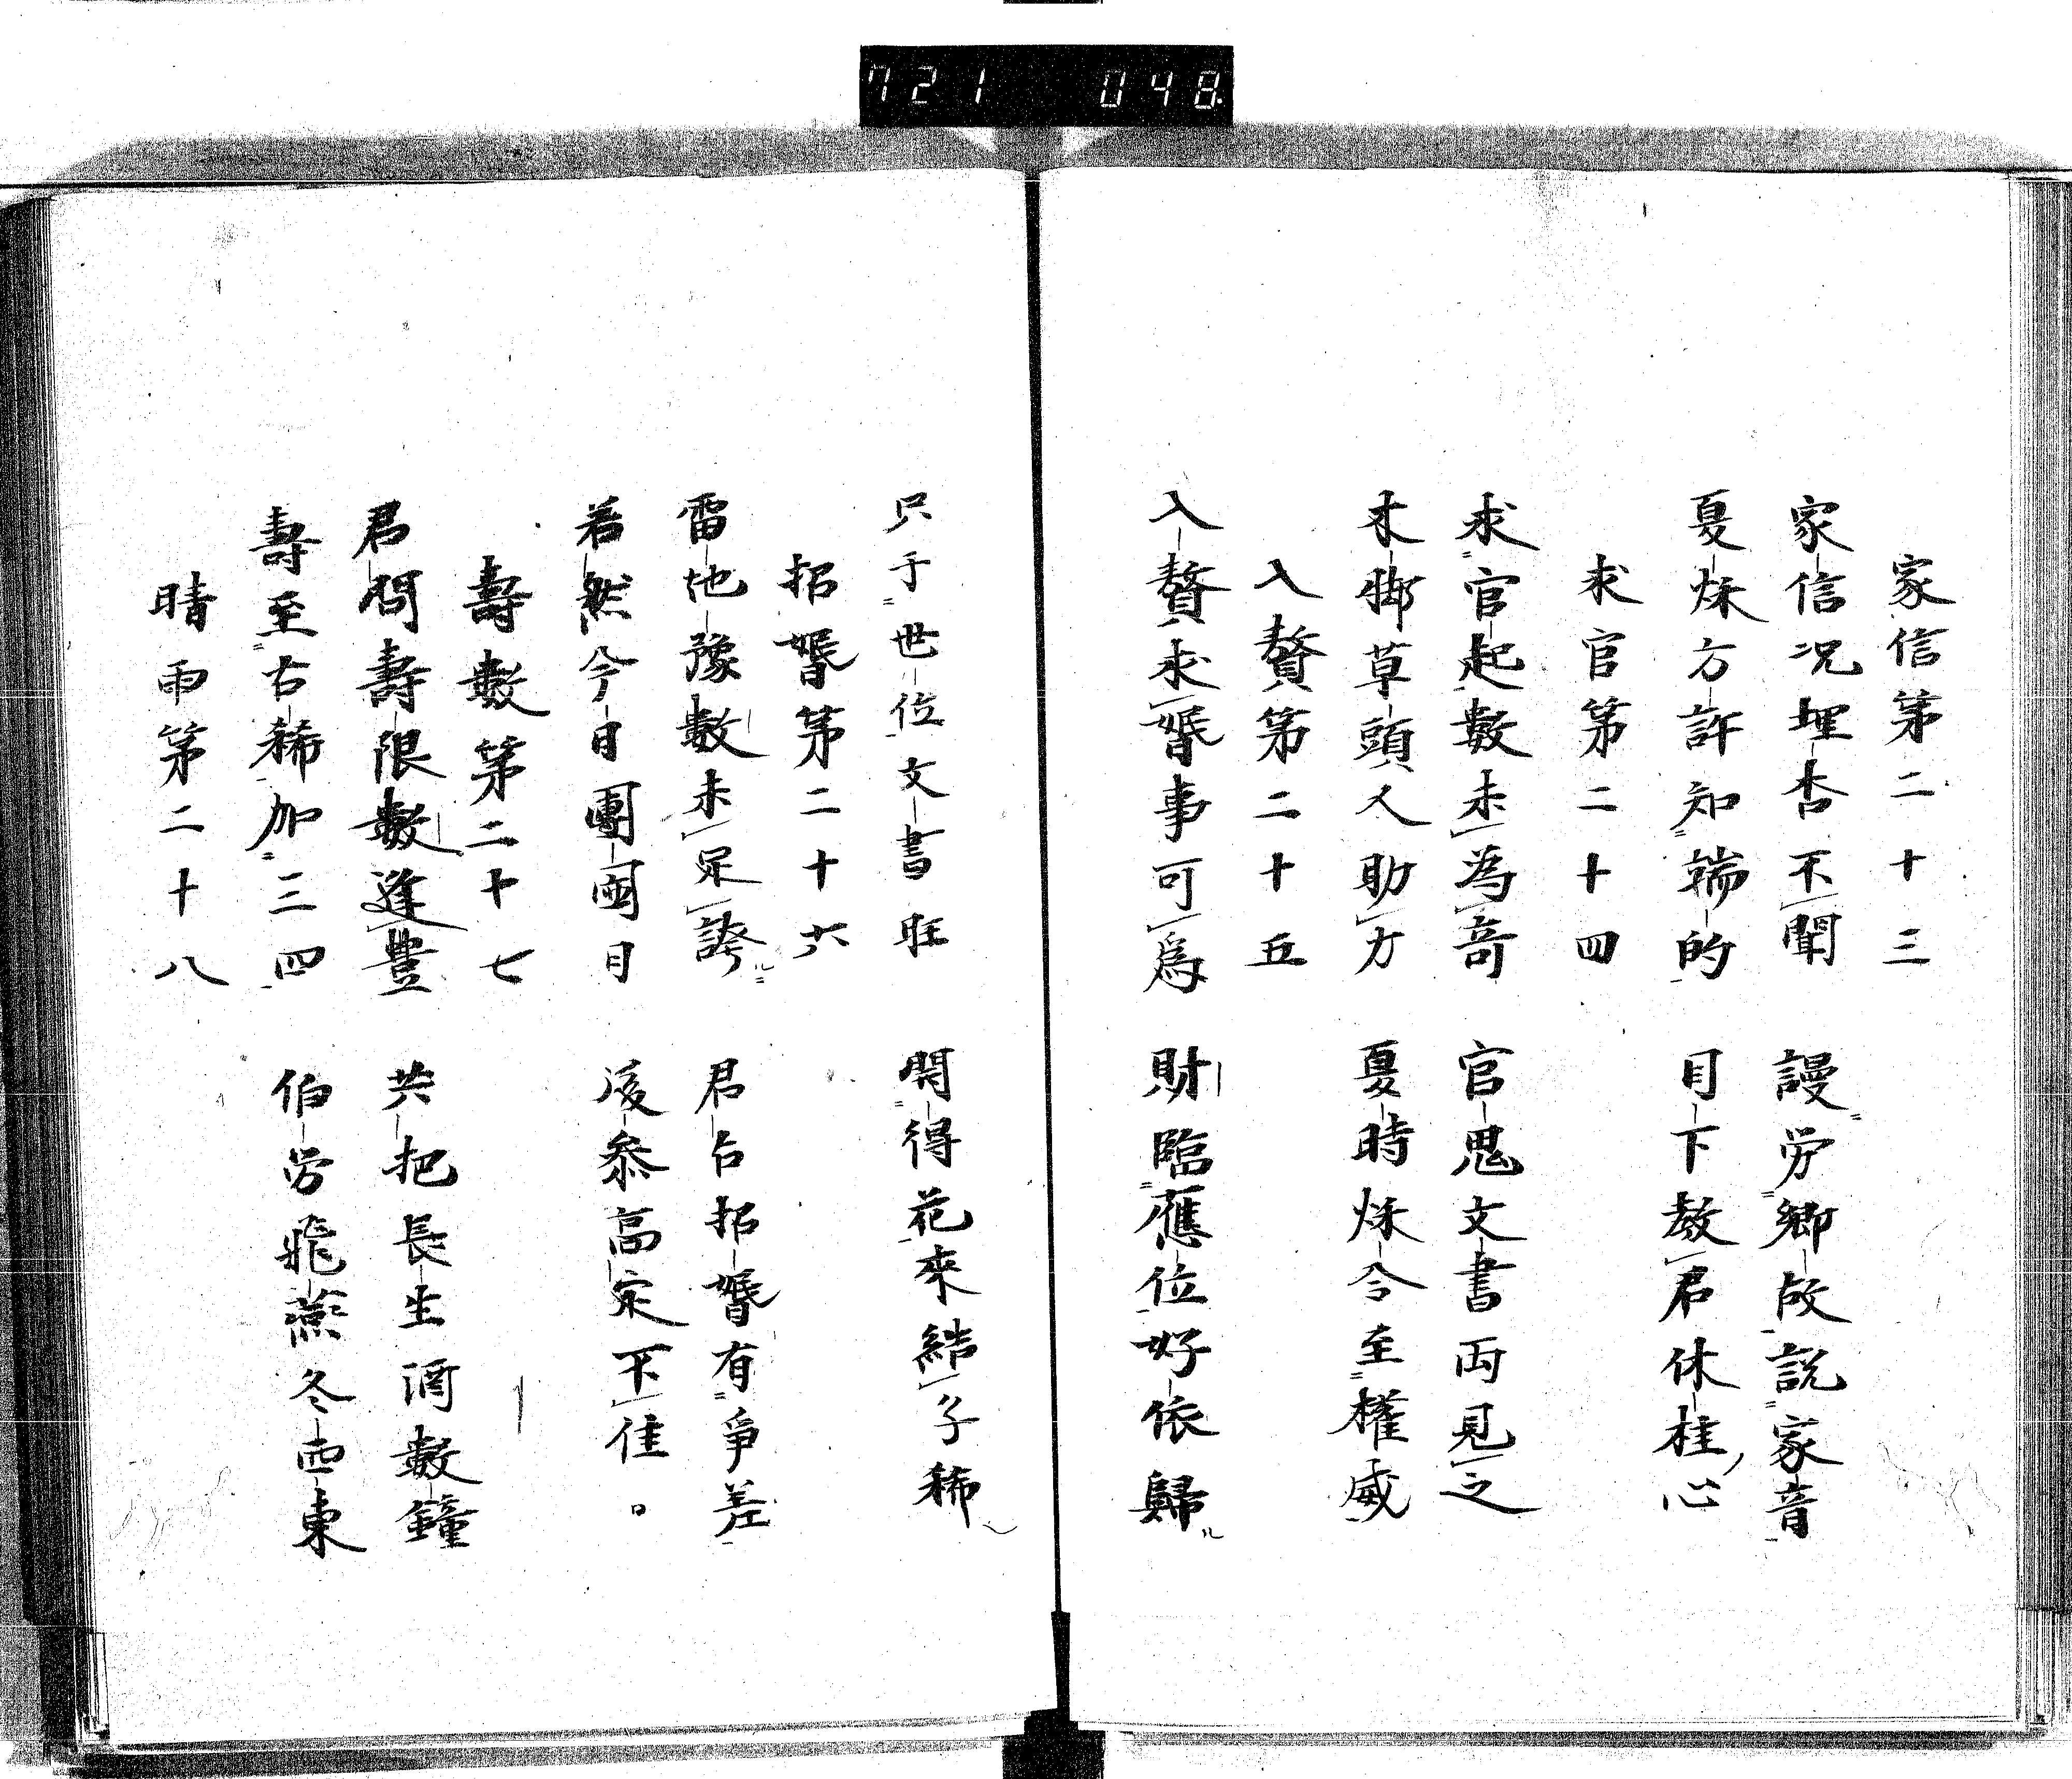 721 048
家信第二十三
家信况埋杳不聞 謾労郷故説家音
夏秌方許知端的 目下教君休桂心
求官第二十四
求官起數未為奇 官鬼文書両見之
木脚草頭人助力 夏時秌令至權威
入贅第二十五
入贅求婚事可爲 財臨應位好依歸
只于世位文書旺 開得花來結子稀
招婚第二十六
雷地豫數未足誇 君占招婚有爭差
若然今日團圎日 後叅高㝎下佳
壽數第二十七
君問壽限數逢豊 共把長生酒數鐘
壽至古稀加三四 伯労飛燕冬西東
晴雨第二十八